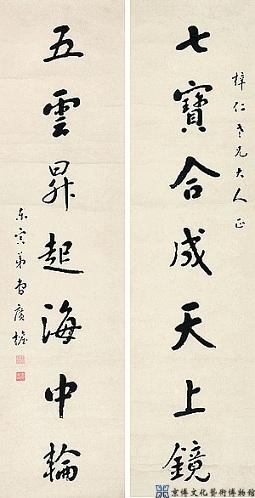 梓仁老兄大人正
七寶合成天上鏡
五雲昇起海中輪
弟曹廣楨
京博文化藝術博物館